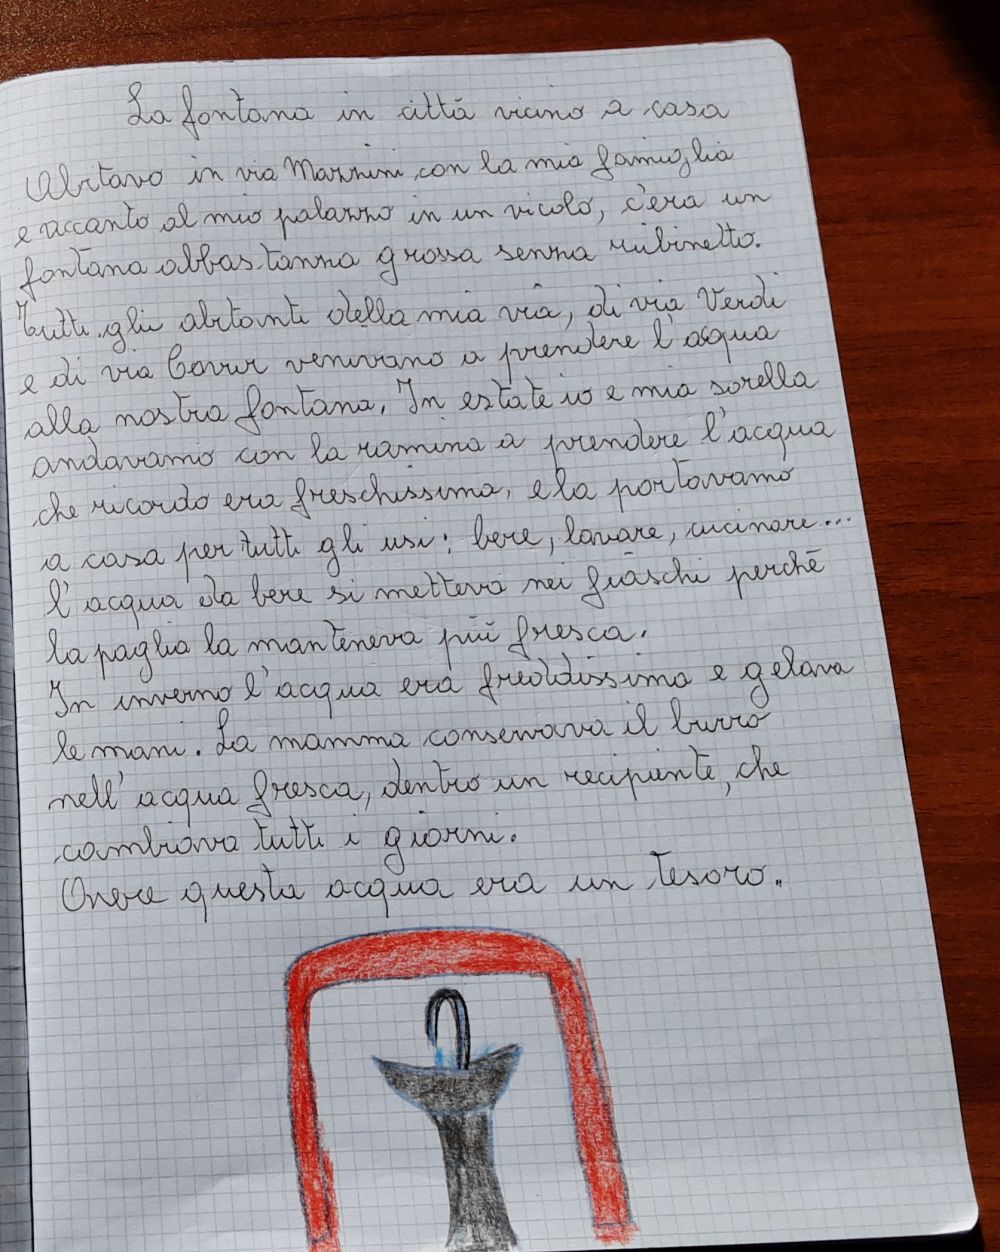 La fontana in città vicino a casa
Abitavo in via Mazzini, con la mia famiglia
e accanto al mio palazzo in un vicolo, c'era un
fontana abbastanza grossa senza rubinetto.
Tutti gli abitanti della mia via, di via Verdi
e di via Cavour venivano a prendere l'acqua
alla nostra fontana. In estate io e mia sorella
andavamo con la ramina a prendere l'acqua
che ricordo era freschissima, e la portavamo
a casa per tutti gli usi: bere, lavare, cucinare...
l'acqua da bere si metteva nei fiaschi perché
la paglia la manteneva più fresca.
In inverno l'acqua era freddissima e gelava
le mani. La mamma conservava il burro
nell'acqua fresca, dentro un recipiente, che
cambiava tutti i giorni.
Avere questa acqua era un tesoro.